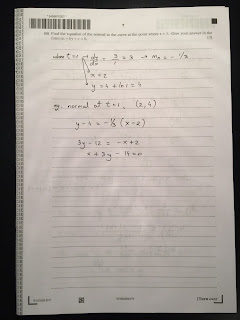 (ii) Find the equation of the normal to the curve at the point where t = 1. Give your answer in the
[3]
when t=1 → dy/dx = 3/1 = 3 → m = - 1/3
x = 2
y = 4 + ln1 = 4
eq. normal at t=1, (2,4)
y - 4 = -1/3 (x - 2)
3y - 12 = -x + 2
x + 3y - 14 = 0
[Turn over